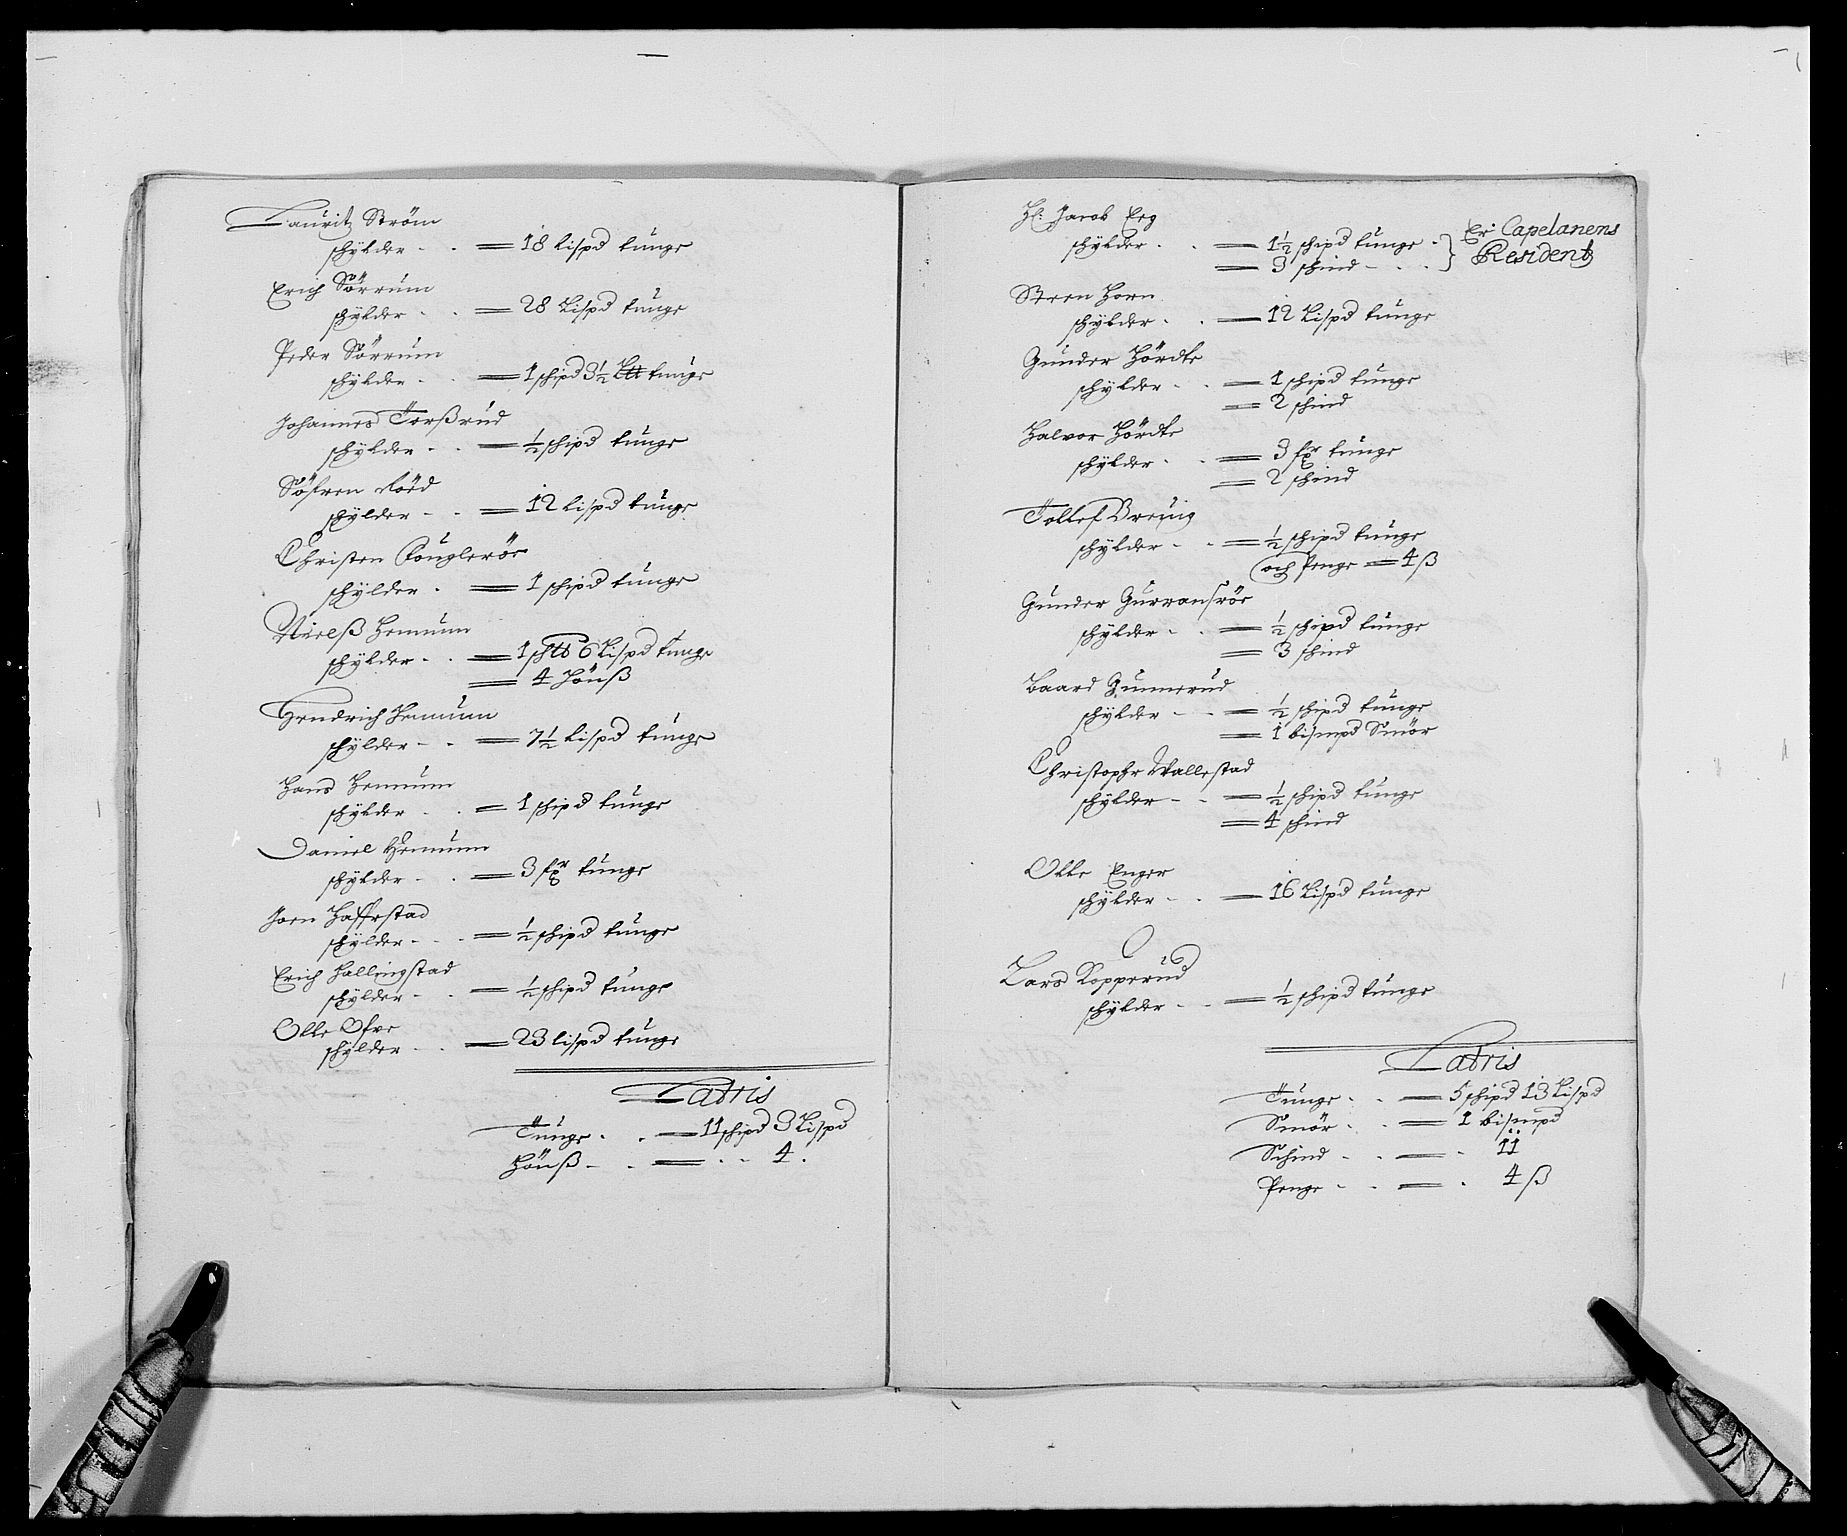 Lauritz Ström
schÿlder - - = 18 lispd tunge
Erich Sörrum
schÿlder - - = 28 Lispd tunge
Peder Sörrum
schÿlder - - = 1 schipd 3½ Ltt tunge
Johannes Torßrud
schÿlder - - = ½ schipd tunge
Söfren Röed
schÿlder - - = 12 lispd tunge
Christen Fouglerör
schÿlder - = 1 schipd tunge
Nielß Hennum
schÿlder - - = 1 schtb 6 Lispd tunge
= 4 Höuß
Hendrich Hennum
schÿlder - - = 7½ Lispd tunge
Hans Hennum
schÿlder - - = 1 schipd tunge
Daniel Hennum
schÿlder - - = 3 fxr tunge
Joen Haffrstad
schÿlder - - = ½ schipd tunge
Erich Hallingstad
schÿlder - - = ½ schipd tunge
Olle Ofre
schÿlder - - = 23 lispd tunge
Latris
Tunge - - = 11 schipd 3 Lispd
Höuß - - = - - 4.
Hl: Jacob Eeg
schÿlder - - = 1½ schipd tunge - } Er: Capelanens
= 3 schind - - - Residentz
Steen Horn
schÿlder - - = 12 Lispd tunge
Gunder Hördte
schÿlder - - = 1 schipd tunge
= 2 schind
Halvor Hördte
schÿlder - - = 3 fxr tunge
= 2 schind
Tollef Breÿng
schÿlder - - = ½ schipd tunge
och Penge = 4 ß
Gunder
schÿlder - - = ½ schipd tunge
= 3 schind
Baard Gunnerud
schÿlder - - = ½ schipd tunge
= 1 bismpd Smör
Christopher Wallestad
schÿlder - - = ½ schipd tunge
= 4 schind
Olle Enger
schÿlder - - = 16 Lispd tunge
Lars Kopperud
schÿlder - - = ½ schipd tunge
Latris
Tunge - - = 5 schipd 13 Lispd
Smör - - = 1 bismpd
Schind - - = - 11
Penge - - = - 4 ß